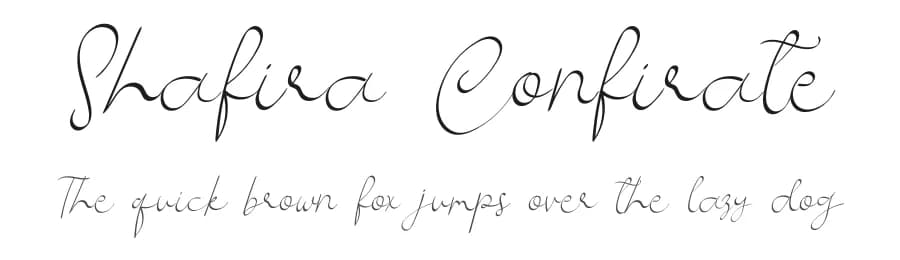 Shafira Confirate
The quick brown fox jumps over the lazy dog